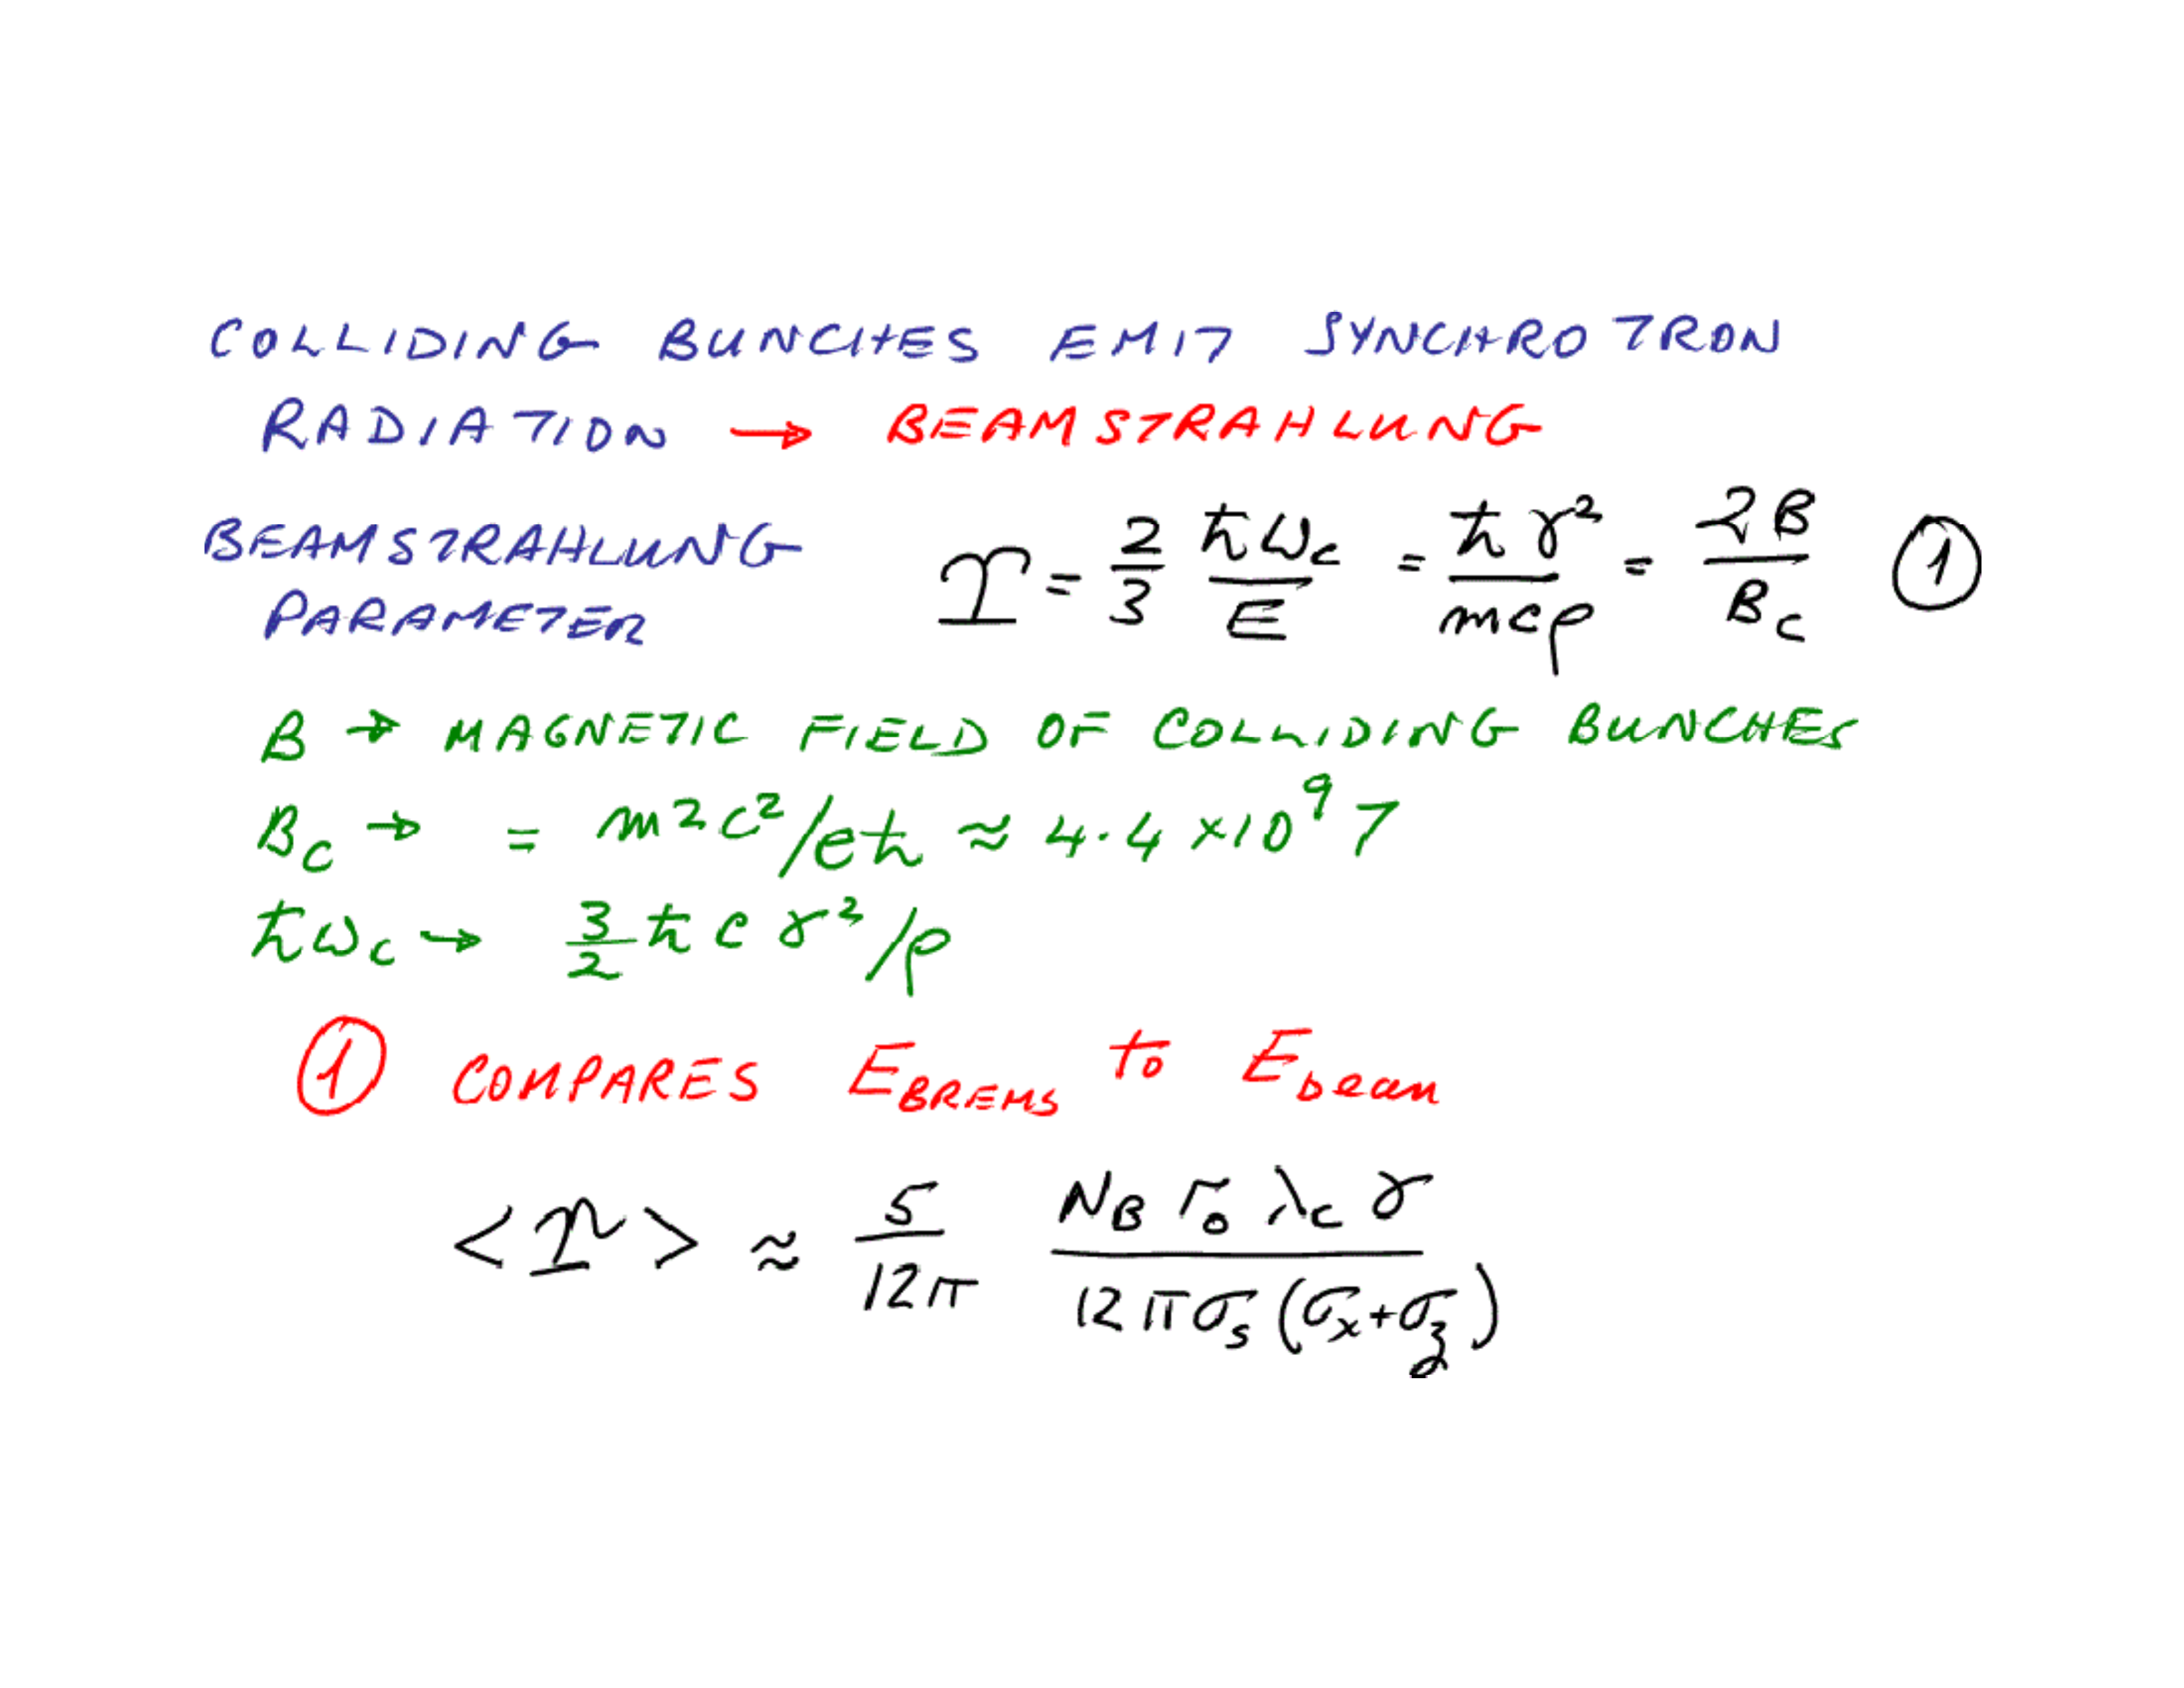 COLLIDING BUNCHES EMIT SYNCHROTRON
RADIATION → BEAMSTRAHLUNG
BEAMSTRAHLUNG
PARAMETER
ϒ = 2/3 ħω_c/E = ħγ²/mcρ = 2B/B_c ①
B → MAGNETIC FIELD OF COLLIDING BUNCHES
B_c → = m2c²/eħ ≈ 4.4 ×10⁹ T
ħω_c → 3/2 ħcγ²/ρ
① COMPARES E_BREMS to E_beam
<ϒ> ≈ 5/12π N_B r_0 λ_c γ / 12πσ_s(σ_x+σ_z)